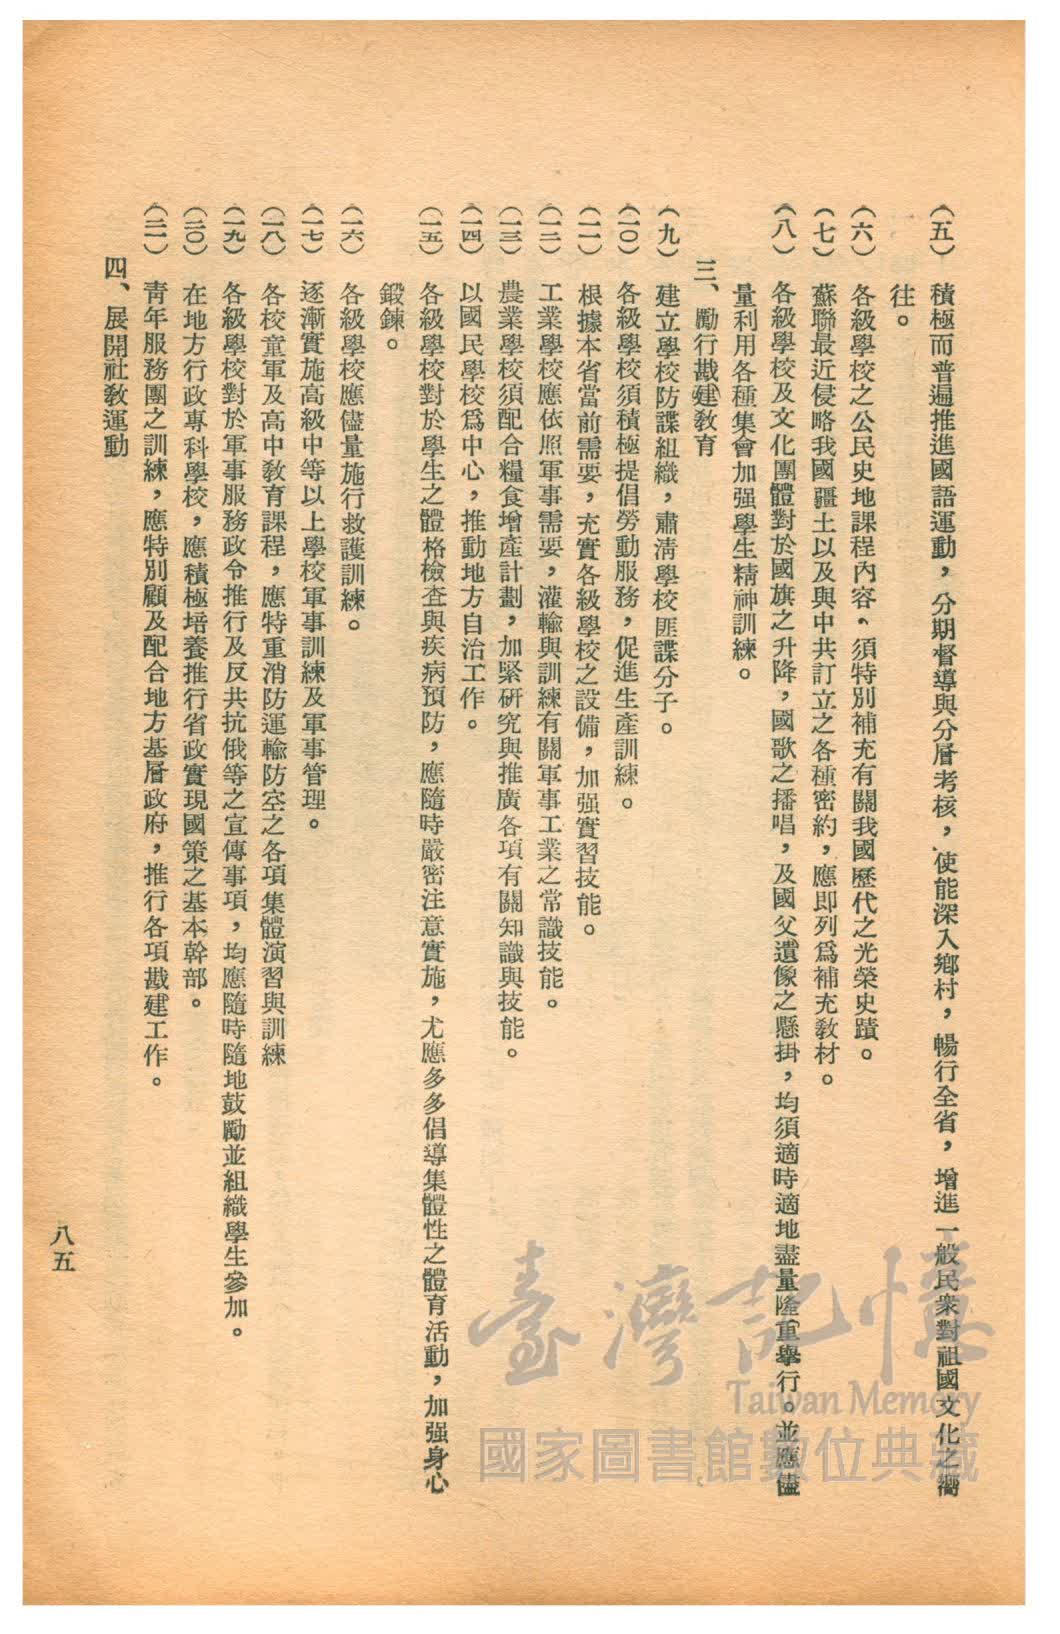 （五）　積極而普遍推進國語運動，分期督導與分層考核，使能深入鄉村，暢行全省，增進一般民衆對祖國文化之嚮
往。
（六）　各級學校之公民史地課程內容、須特別補充有關我國歷代之光榮史蹟。
（七）　蘇聯最近侵略我國疆土以及與中共訂立之各種密約，應即列爲補充敎材。
（八）　各級學校及文化團體對於國旗之升降，國歌之播唱，及國父遺像之懸掛，均須適時適地盡量隆重舉行。並應儘
量利用各種集會加强學生精神訓練。
三、勵行戡建敎育
（九）　建立學校防諜組織，肅淸學校匪諜分子。
（一〇）　各級學校須積極提倡勞動服務，促進生產訓練。
（一一）　根據本省當前需要，充實各級學校之設備，加强實習技能。
（一二）　工業學校應依照軍事需要，灌輸與訓練有關軍事工業之常識技能。
（一三）　農業學校須配合糧食增產計劃，加緊硏究與推廣各項有關知識與技能。
（一四）　以國民學校爲中心，推動地方自治工作。
（一五）　各級學校對於學生之體格檢査與疾病預防，應隨時嚴密注意實施，尤應多多倡導集體性之體育活動，加强身心
鍛鍊。
（一六）　各級學校應儘量施行救護訓練。
（一七）　逐漸實施高級中等以上學校軍事訓練及軍事管理。
（一八）　各校童軍及高中敎育課程，應特重消防運輸防空之各項集體演習與訓練
（一九）　各級學校對於軍事服務政令推行及反共抗俄等之宣傳事項，均應隨時隨地鼓勵並組織學生參加。
（二〇）　在地方行政專科學校，應積極培養推行省政實現國策之基本幹部。
（二一）　靑年服務團之訓練，應特別顧及配合地方基層政府，推行各項戡建工作。
四、展開社敎運動
八五
臺灣記憶
Taiwan Memory
國家圖書館數位典藏